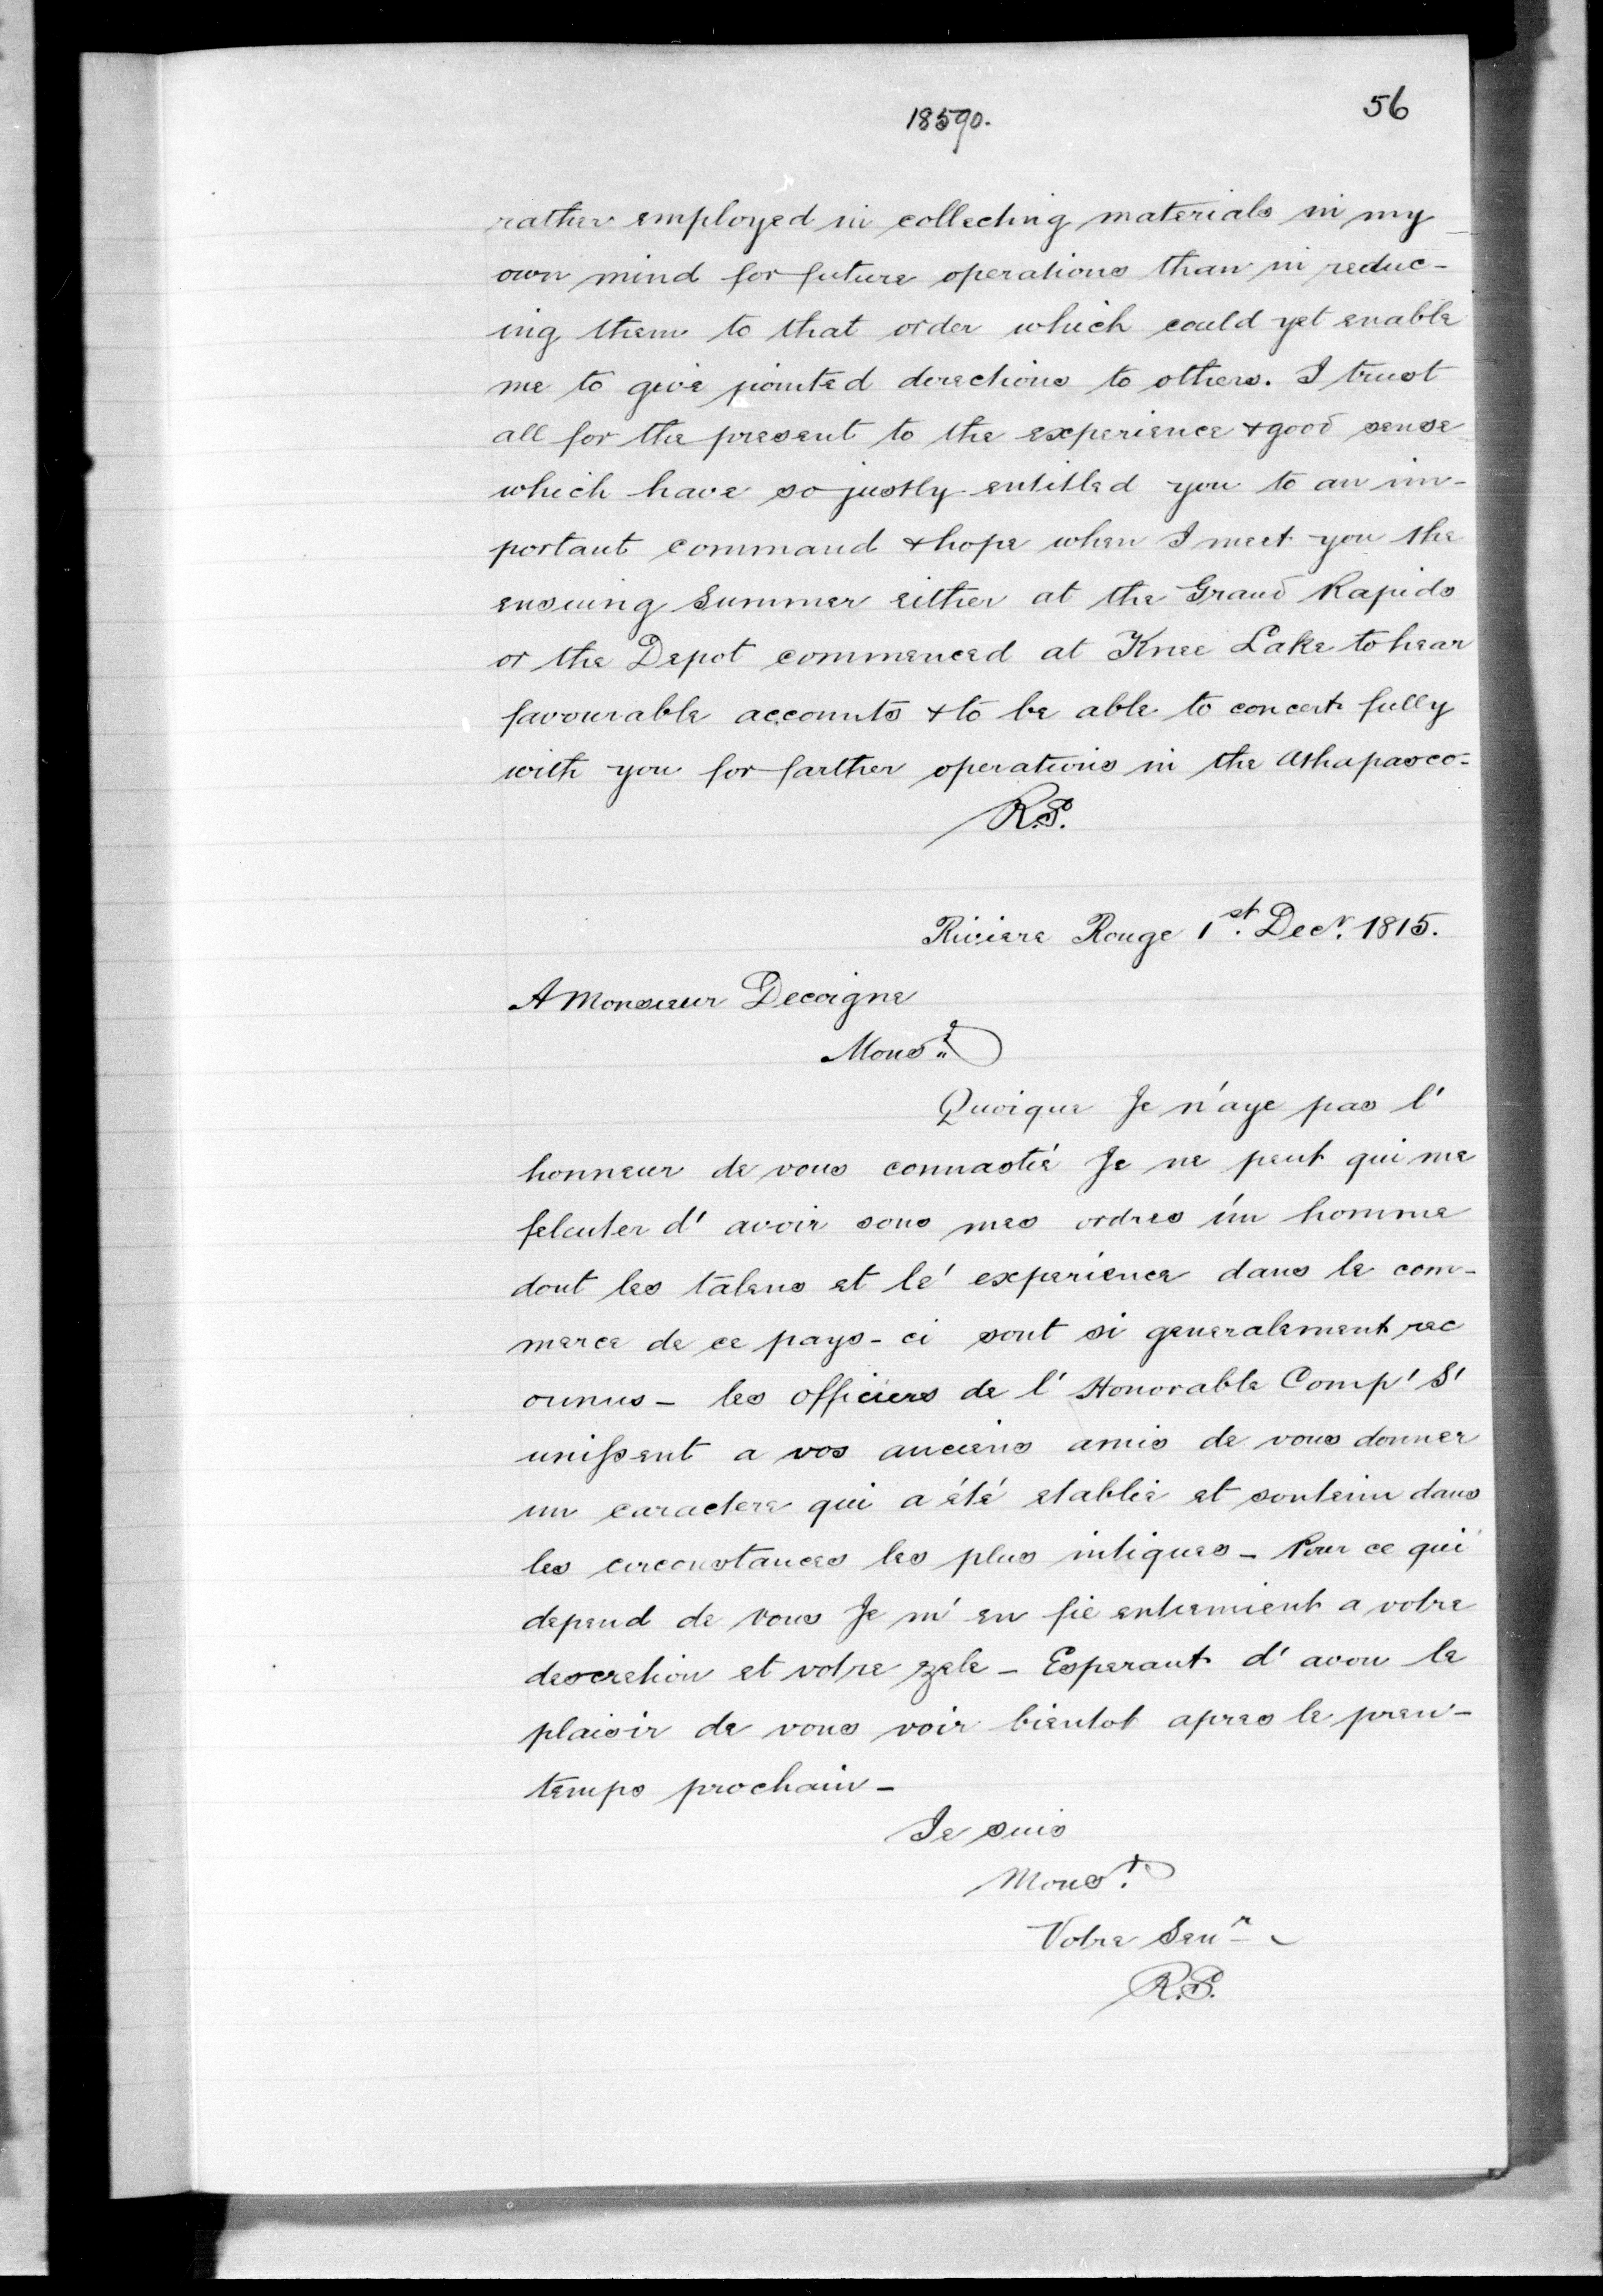 18590.
56
rather employed in collecting materials in my
own mind for future operations than in reduc-
ing them to that order which could yet enable
me to give pointed directions to others. I trust
all for the present to the experience & good sense
which have so justly entitled you to an im-
portant command & hope when I meet you the
ensuing Summer either at the Grand Rapids
or the Depot commenced at Knee Lake to hear
favourable accounts & to be able to concert fully
with you for farther operations in the Athapasco-
R.S.
Riviere Rouge 1st. Decr. 1815.
A Monsieur Decoigne
Monsr.
Quoique Je n'aye pas l'
honneur de vous connastié Je ne peut qui me
felcuter d' avoir sous mes ordres ún homme
dont les talens et lé experience dans le com-
merce de ce pays-ci sont si generalement rec
ounus - les officiers de l' Honorable Comp' S'
unissent a vos anciens amis de vous donner
un caractere qui a été etablie et soutenu dans
les circonstances les plus intiques - Pour ce qui
depend de vous Je m' en fie entiemient a votre
descretion et votre zele - Esperant d' avou le
plaisir de vous voir bientot apres le pren-
temps prochain -
Je suis
Monsr.
Votre Senr
R.S.